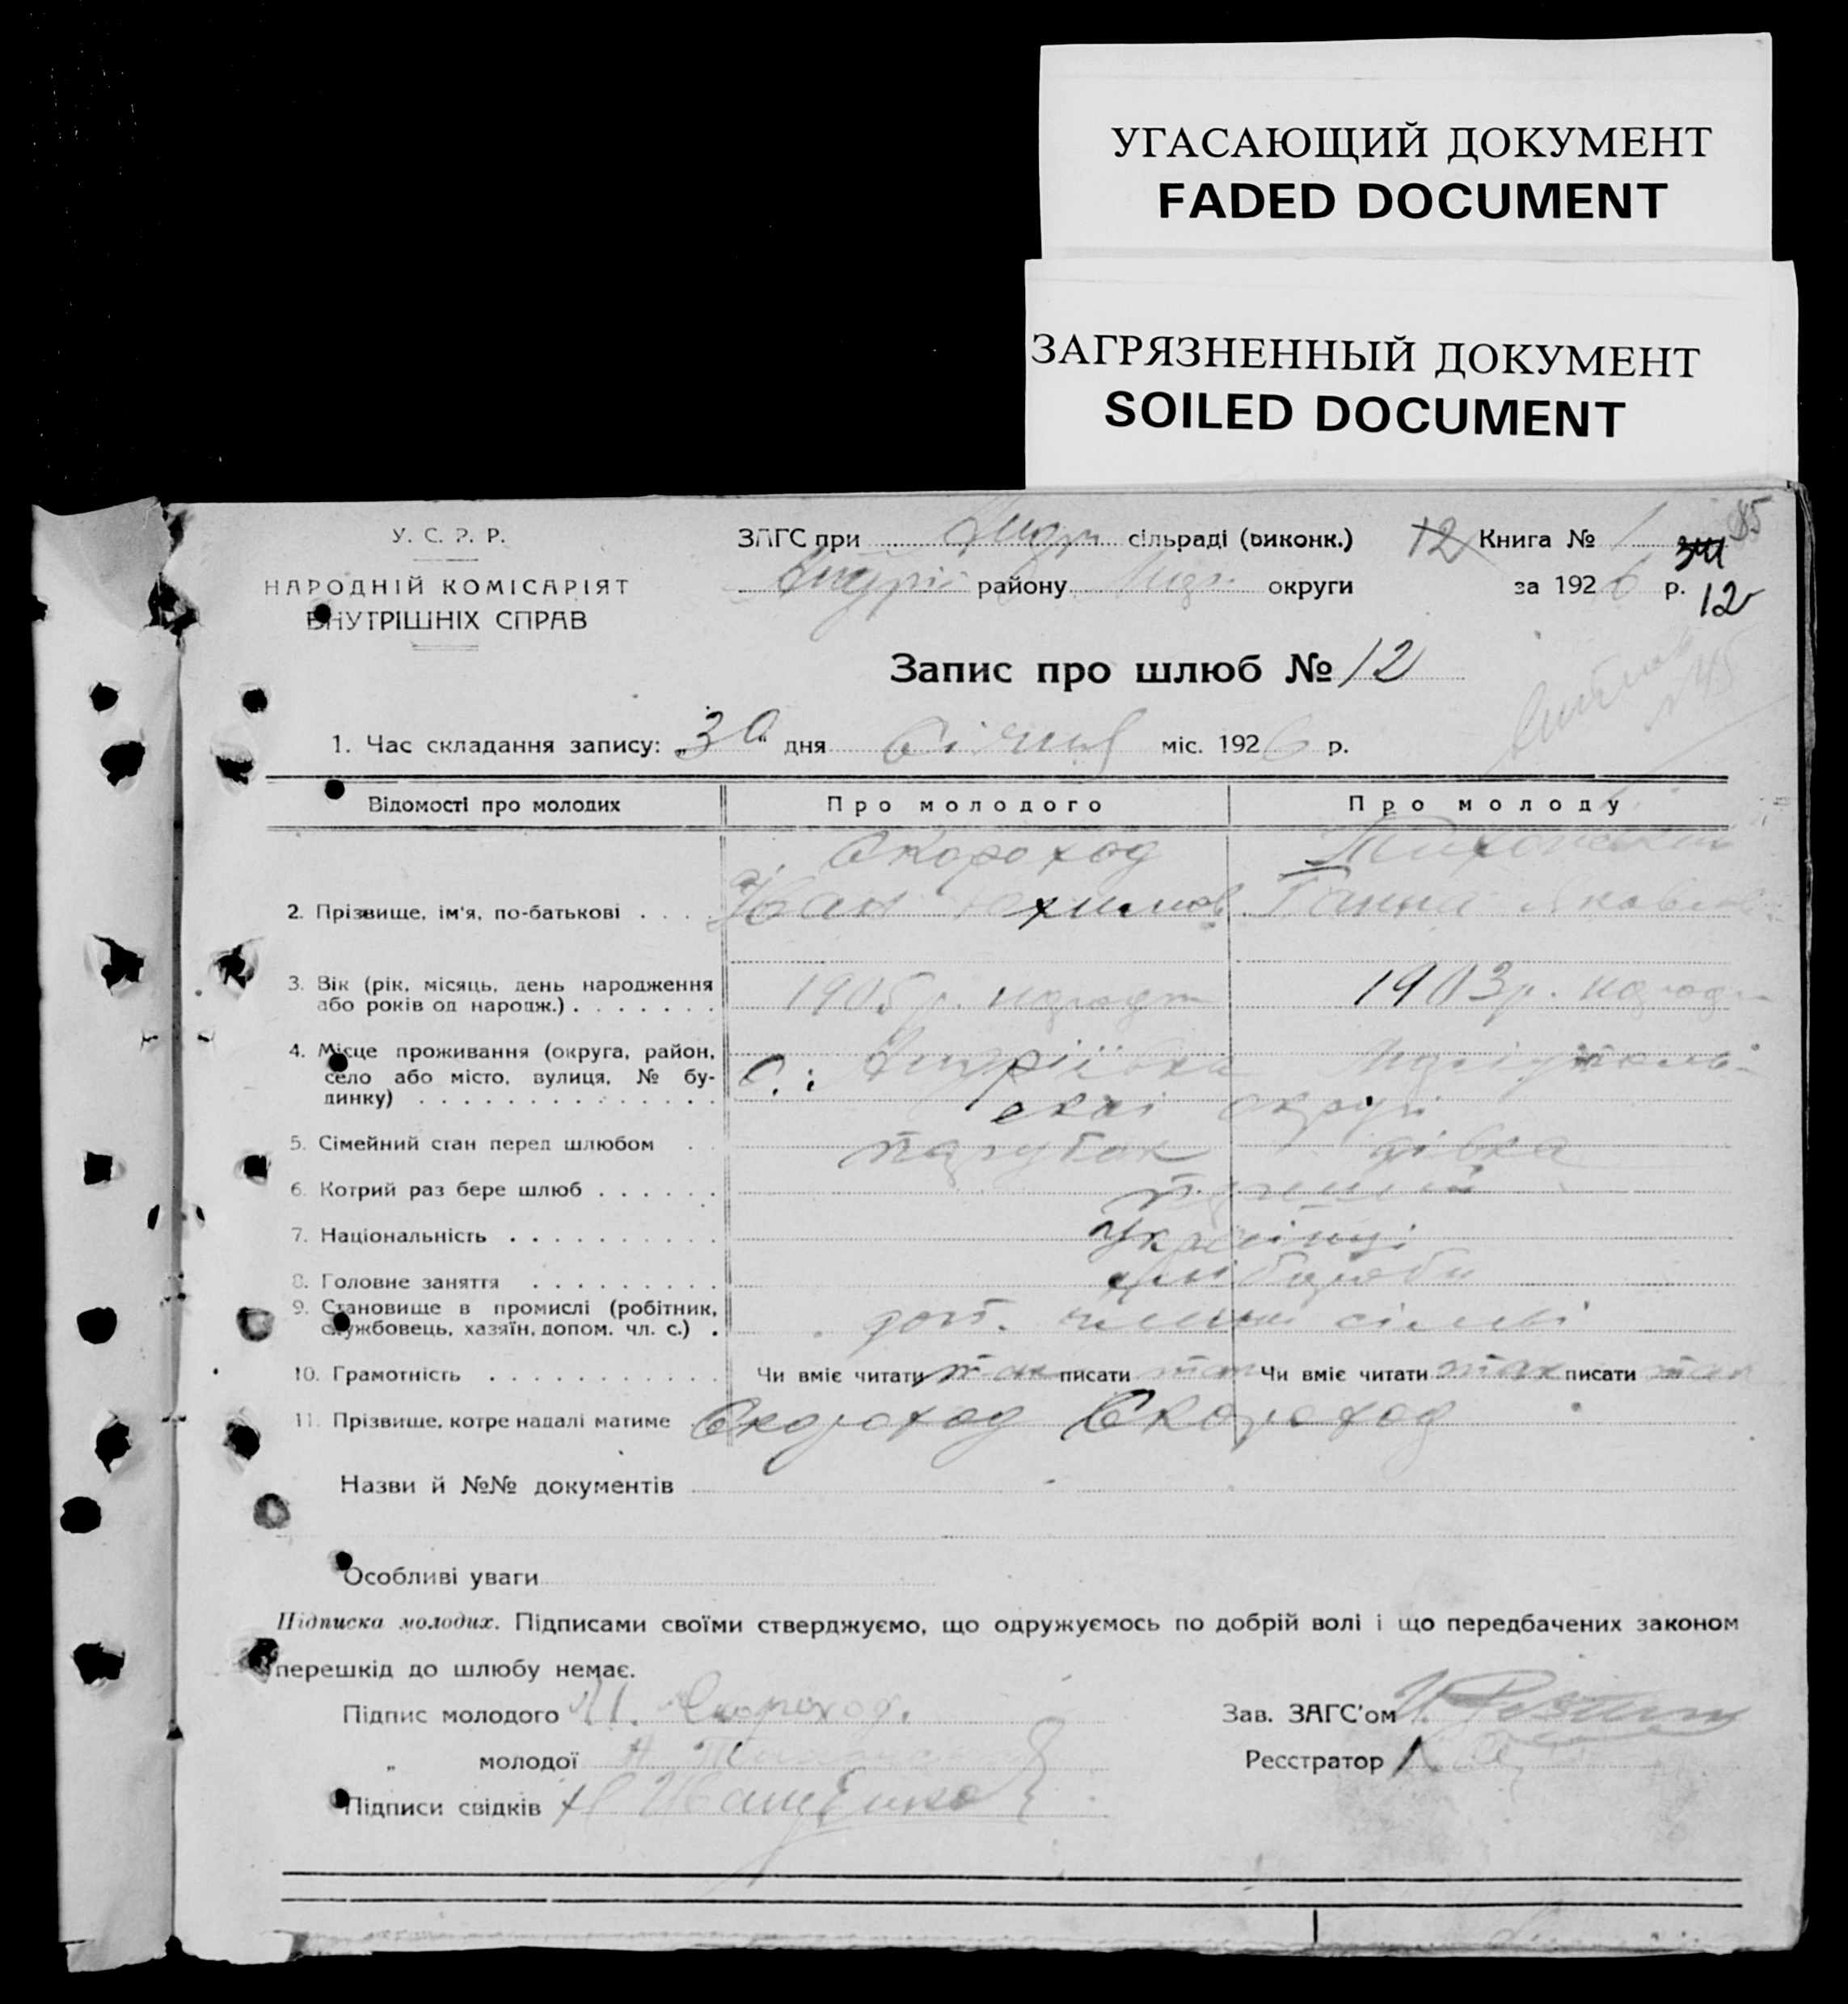 УГАСАЮЩИЙ ДОКУМЕНТ
FADED DOCUMENT
ЗАГРЯЗНЕННЫЙ ДОКУМЕНТ
SOILED DOCUMENT
У. С. Р. Р.
НАРОДНІЙ КОМІСАРІЯТ
ВНУТРІШНІХ СПРАВ
ЗАГС при сільраді (виконк.)
району округи
12 Книга № 1 85
за 1926 р. 12
Запис про шлюб № 12
1. Час складання запису: „30" дня січня міс. 1926 р.
Відомості про молодих Про молодого Про молоду
Скороход
2. Прізвище, ім'я, по-батькові . . . . Іван Юхимов. Ганна Яковл
3. Вік (рік, місяць, день народження
або років од народж.) . . . . . . . 1905 р. народж 1903 р. народж
4. Місце проживання (округа, район,
село або місто, вулиця, № бу-
динку) . . . . . . . . . . . . . . с. Андріївка Маріупольсь-
скої округи
5. Сімейний стан перед шлюбом . парубок дівка
6. Котрий раз бере шлюб . . . . . . перший
7. Національність . . . . . . . . . . українці
8. Головне заняття . . . . . . . . . хлібороби
9. Становище в промислі (робітник,
службовець, хазяїн, допом. чл. с.) . доп. члени сім'ї
10. Грамотність . . . . . . . . . . . Чи вміє читати так писати так Чи вміє читати так писати так
11. Прізвище, котре надалі матиме Скороход Скороход
Назви й №№ документів
Особливі уваги
Підписка молодих. Підписами своїми стверджуємо, що одружуємось по добрій волі і що передбачених законом
перешкід до шлюбу немає.
Підпис молодого И. Скороход. Зав. ЗАГС'ом
„ молодої А. Реєстратор
Підписи свідків